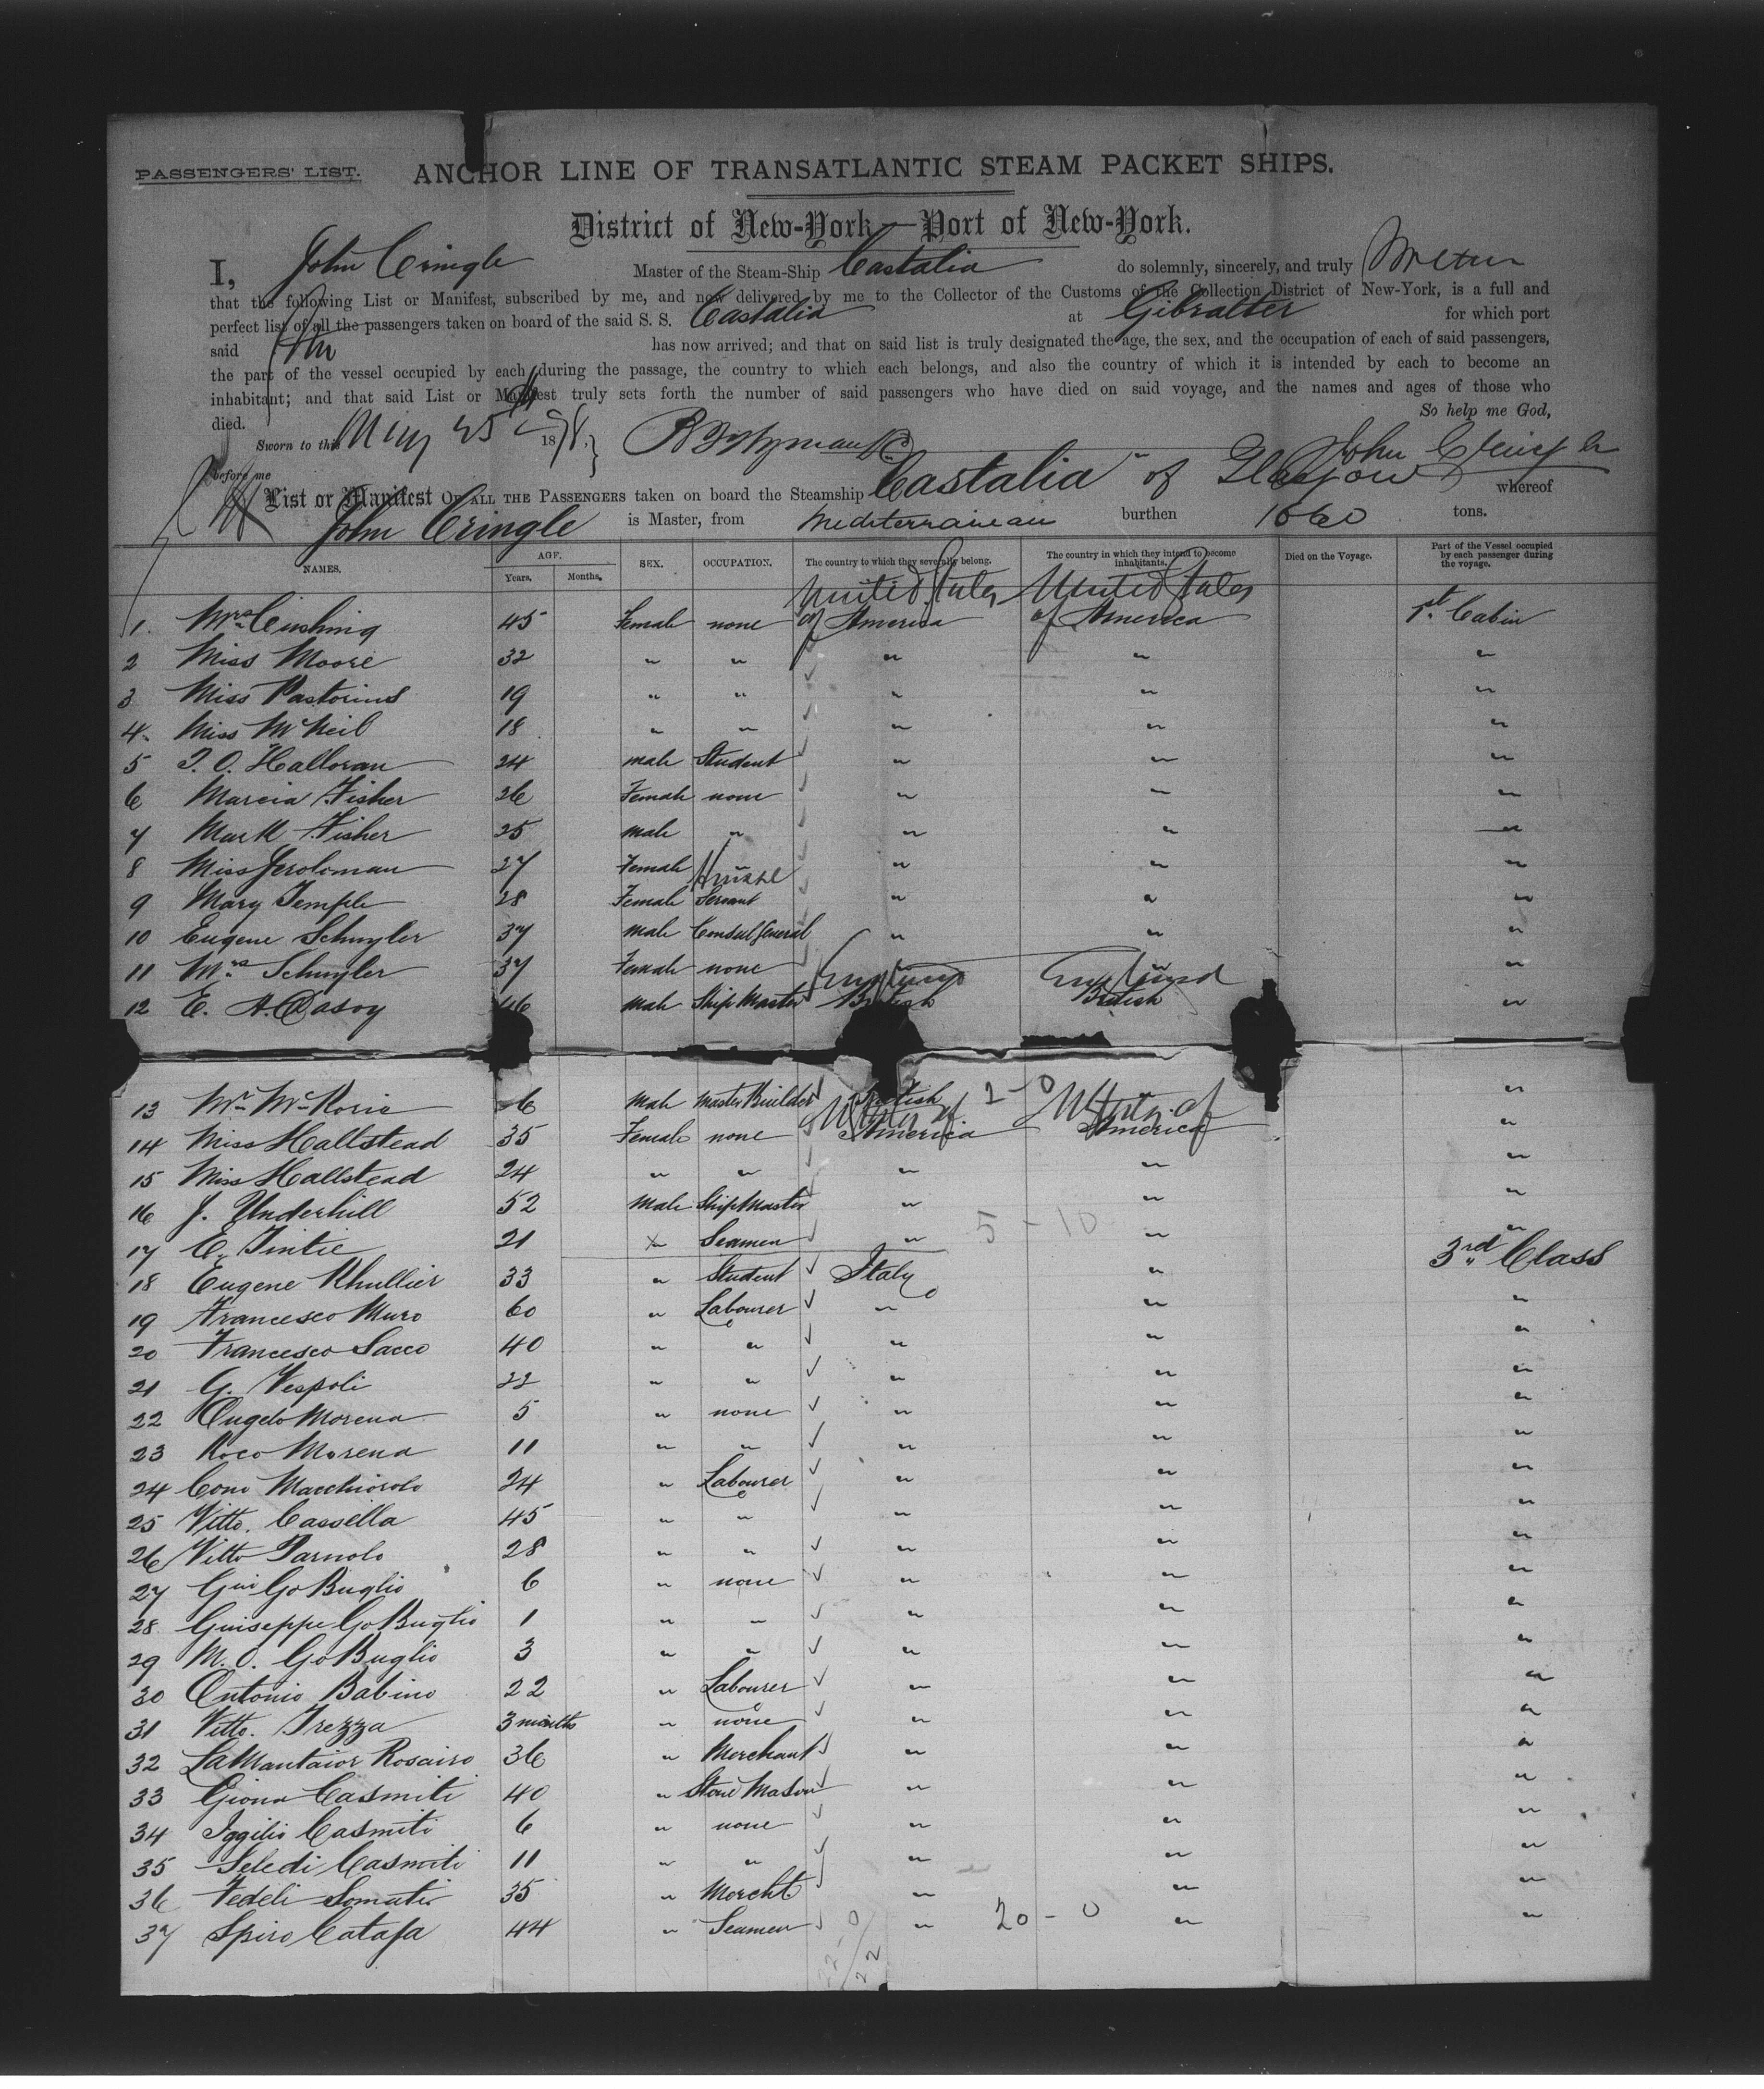 PASSENGERS' LIST. ANCHOR LINE OF TRANSATLANTIC STEAM PACKET SHIPS.
District of New-York—Port of New-York.
I, John Cringle Master of the Steam-Ship Castalia do solemnly, sincerely, and truly
that the following List or Manifest, subscribed by me, and now delivered by me to the Collector of the Customs of the Collection District of New-York, is a full and
perfect list of all the passengers taken on board of the said S. S. Castalia at Gibralter for which port
said has now arrived; and that on said list is truly designated the age, the sex, and the occupation of each of said passengers,
the part of the vessel occupied by each during the passage, the country to which each belongs, and also the country of which it is intended by each to become an
inhabitant; and that said List or Manifest truly sets forth the number of said passengers who have died on said voyage, and the names and ages of those who
died. So help me God,
Sworn to this May 25 1878. John Cringle
before me
List or Manifest OF ALL THE PASSENGERS taken on board the Steamship Castalia of Glasgow whereof
John Cringle is Master, from Mediterranean burthen 1660 tons.
NAMES. AGE. Years. Months. SEX. OCCUPATION. The country to which they severally belong. The country in which they intend to become inhabitants. Died on the Voyage. Part of the Vessel occupied by each passenger during the voyage.
United States United States
1. Mrs Cushing 45 Female none of America of America 1st Cabin
2 Miss Moore 32 " " " " "
3 Miss Pastorius 19 " " " " "
4. Miss McNeil 18 " " " " "
5 T. O. Halloran 24 male Student " " "
6 Marcia Fisher 26 Female none " " "
7 Mark Fisher 25 male " " " "
8 Miss Jeroloman 27 Female " " " "
Nurse
9 Mary Temple 28 Female Servant " " "
10 Eugene Schuyler 37 male Consul General " " "
11 Mrs Schuyler 37 Female none " "
England England
12 E. A. Casoy 46 male Ship Master British British "
13 Mr McRorie 6 male Master Builder British 2-0 "
U States of U States of
14 Miss Hallstead 35 Female none America America "
15 Miss Hallstead 24 " " " " "
16 J. Underhill 52 male Ship Master " " "
17 E. Tintie 21 " Seamen " 5-10 " "
18 Eugene Khullier 33 " Student Italy " 3rd Class
19 Francesco Muro 60 " Labourer " " "
20 Francesco Sacco 40 " " " " "
21 G. Vespoli 22 " " " " "
22 Angelo Morena 5 " none " " "
23 Roco Morena 11 " " " " "
24 Cono Macchiorolo 24 " Labourer " " "
25 Vitto. Cassella 45 " " " " "
26 Vitto Tarnolo 28 " " " " "
27 Gui Go Buglio 6 " none " " "
28 Guiseppe Go Buglio 1 " " " " "
29 M. O. Go Buglio 3 " " " " "
30 Antonio Babino 22 " Labourer " " "
31 Vitto. Trezza 3 months " none " " "
32 LaMantaior Rosairo 36 " Merchant " " "
33 Giona Casmiti 40 " Stone Mason " " "
34 Iggilio Casmiti 6 " none " " "
35 Seledi Casmiti 11 " " " " "
36 Fedeli Somatis 35 " Morcht " " "
37 Spiro Catafa 44 " Seamen " 20-0 " "
22-0
22